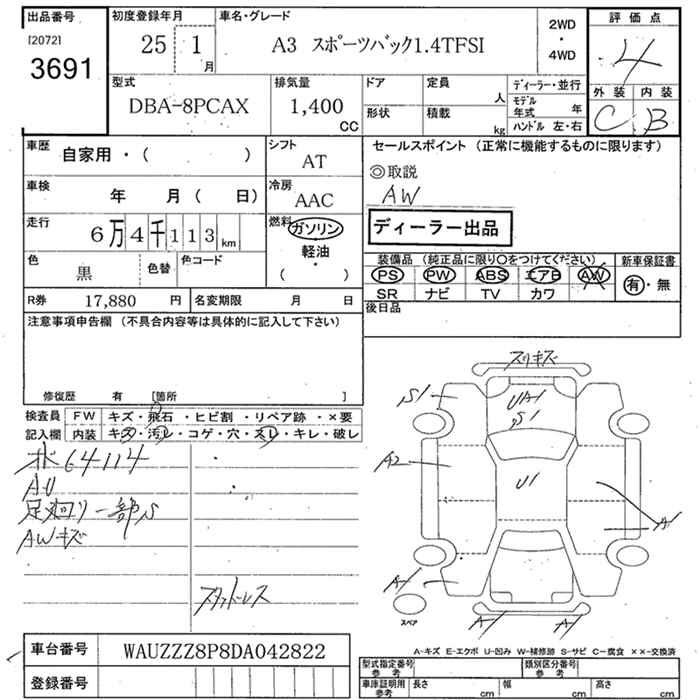 出品番号 初度登録年月 車名・グレード 2WD ・ 4WD 評価点
[2072]
3691 25 1月 A3 スポーツバック1.4TFSI 4
型式 排気量 ドア 定員 人 ディーラー・並行 外装 内装
DBA-8PCAX 1,400 CC 形状 積載 kg モデル年式 年 C B
ハンドル 左・右
車歴 自家用・( ) シフト AT セールスポイント (正常に機能するものに限ります)
◎取説
車検 年 月( 日) 冷房 AAC AW
走行 6万4千113km 燃料 ガソリン・軽油 ( ) ディーラー出品
色 黒 色替 色コード 装備品 (純正品に限り○をつけてください) 新車保証書
PS PW ABS エアB AW 有・無
SR ナビ TV カワ
R券 17,880 円 名変期限 月 日 後日品
注意事項申告欄 (不具合内容等は具体的に記入して下さい)
修復歴 有 [箇所 ]
検査員 FW キズ・飛石・ヒビ割・リペア跡・×要
記入欄 内装 キズ・汚レ・コゲ・穴・スレ・キレ・破レ
64114
AU
足廻り一部S
AWキズ
スタッドレス
スリキズ
S1 UA1
S1
A2 U1
A1
A1 スペア
A1 A1
A-キズ E-エクボ U-凹み W-補修跡 S-サビ C-腐食 ××-交換済
車台番号 WAUZZZ8P8DA042822
登録番号
型式指定番号 参考 類別区分番号 参考
車庫証明用 参考 長さ cm 幅 cm 高さ cm